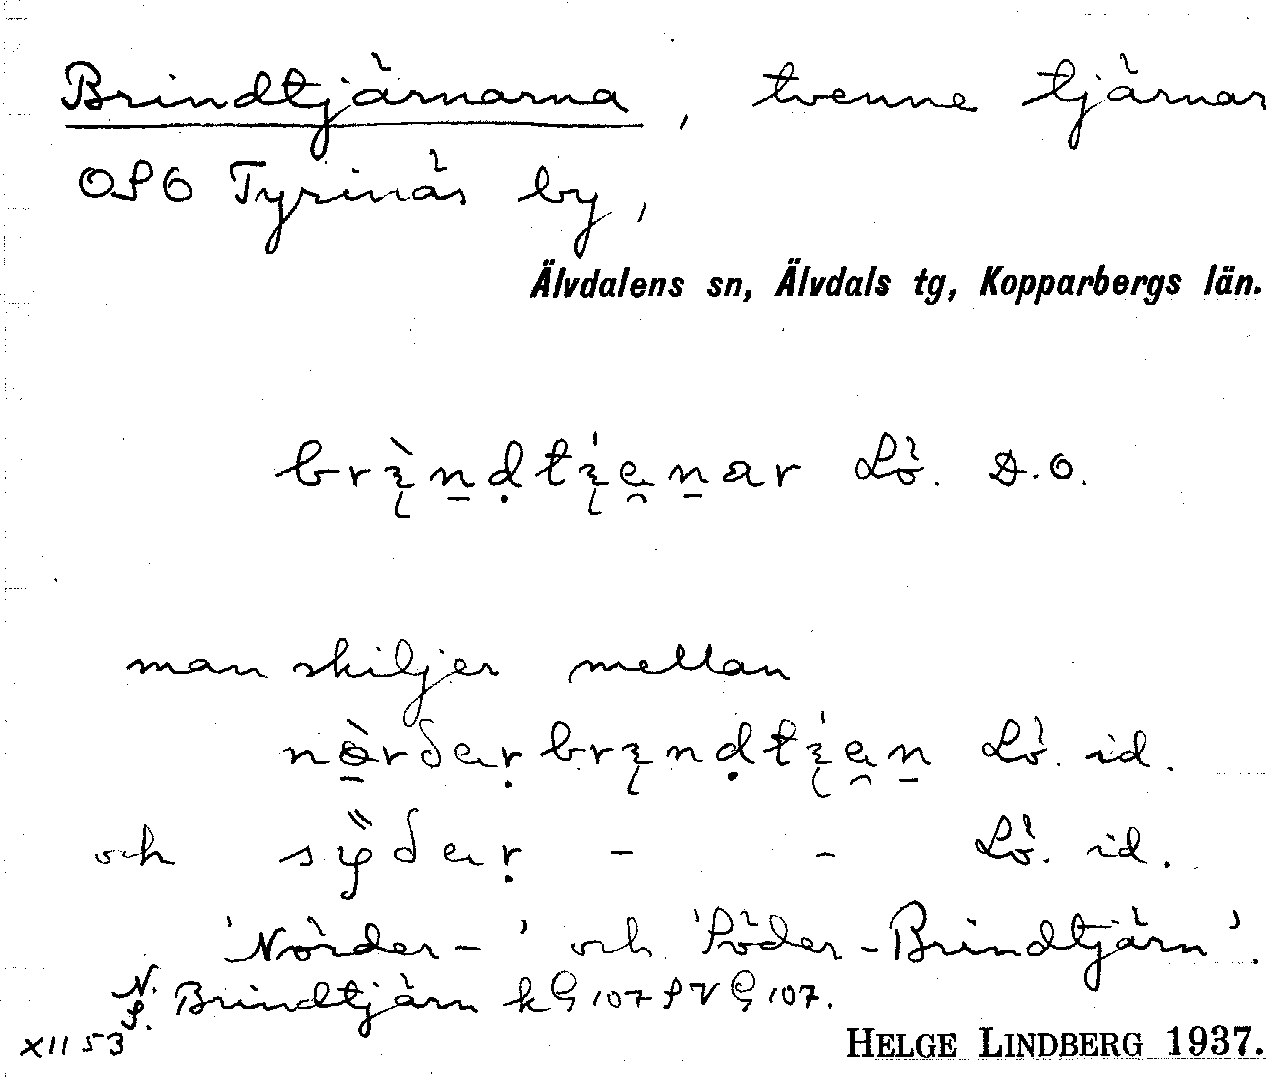 Brindtjärnarna, tvenne tjärnar
OSO Tyrinäs by,
Älvdalens sn, Älvdals tg, Kopparbergs län.
Lö. D.O.
man skiljer mellan
Lö. id.
och - - Lö. id.
'Nörder-' och 'Söder-Brindtjärn'.
N.
S. Brindtjärn k G 107 S V G 107.
XII 53
HELGE LINDBERG 1937.